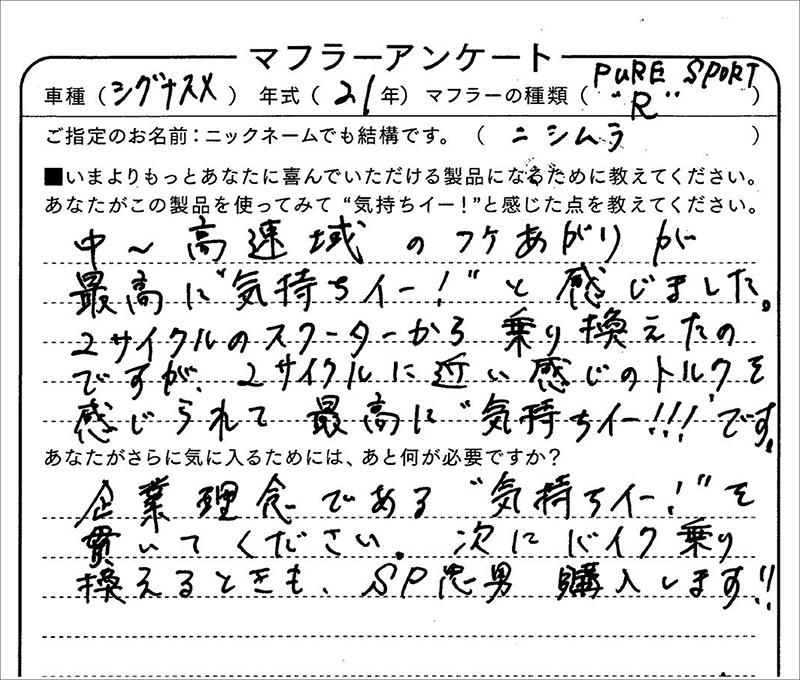 マフラーアンケート
車種（シグナスX）　年式（21年）マフラーの種類（PURE SPORT "R"）
ご指定のお名前：ニックネームでも結構です。（ニシムラ）
■いまよりもっとあなたに喜んでいただける製品になるために教えてください。
あなたがこの製品を使ってみて“気持ちイー！”と感じた点を教えてください。
中～高速域のフケあがりが
最高に"気持ちイー！"と感じました。
2サイクルのスクーターから乗り換えたの
ですが、2サイクルに近い感じのトルクを
感じられて最高に"気持ちイー!!!"です。
あなたがさらに気に入るためには、あと何が必要ですか？
企業理念である"気持ちイー！"を
貫いてください。次にバイク乗り
換えるときも、SP忠男購入します!!